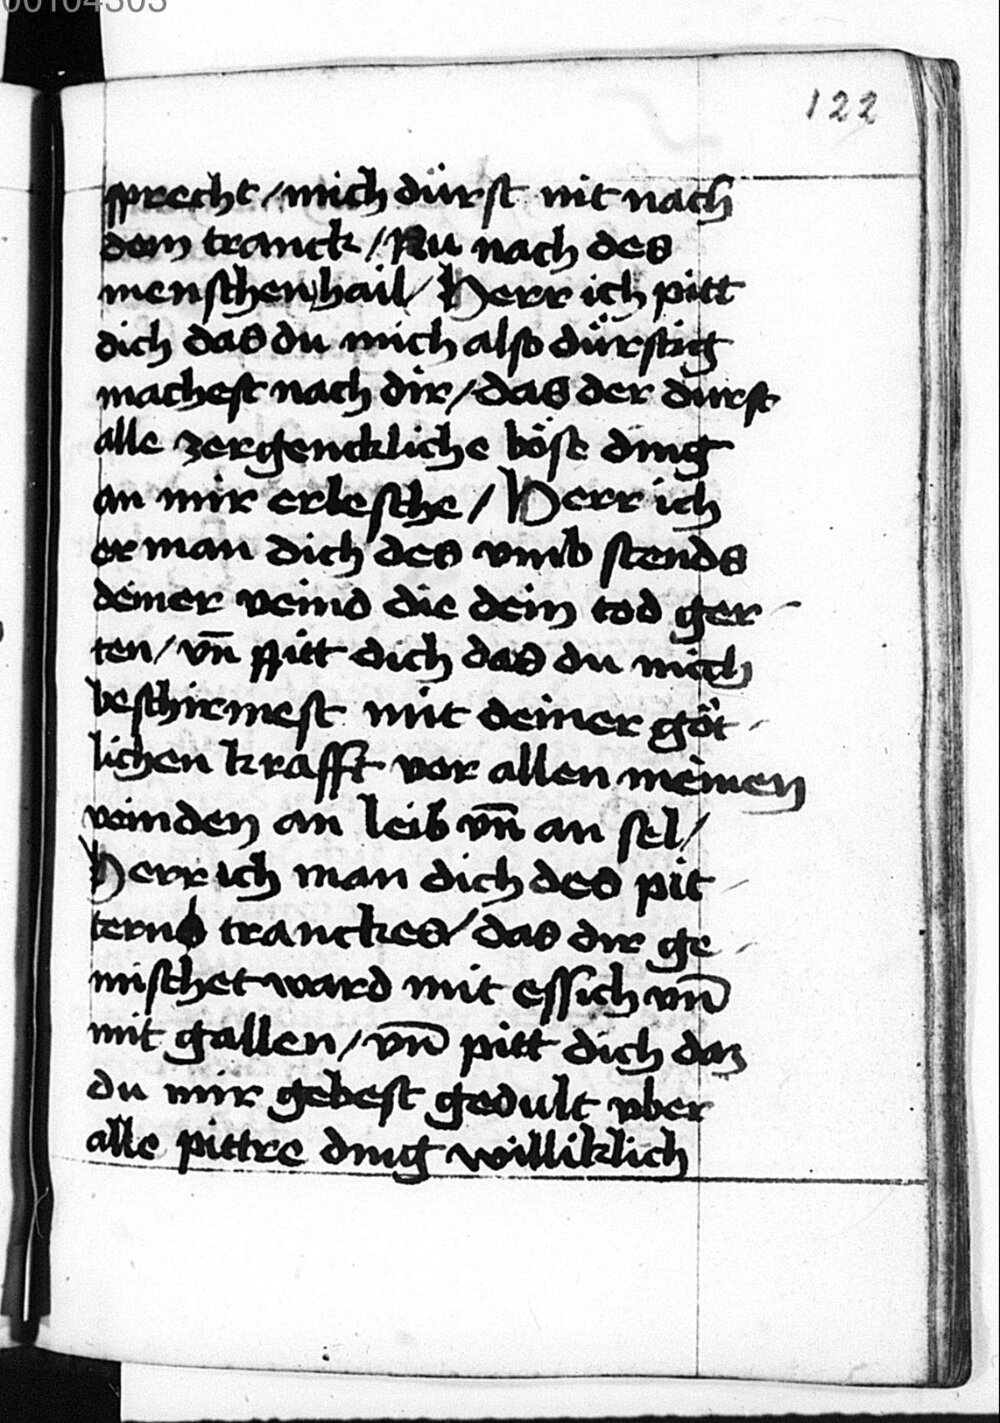 00104303
122
sprecht / mich dürst nit nach
dem tranck / Nu nach des
menschen hail / Herr ich pitt
dich das du mich also dürstig
machest nach dir / das der durst
alle zergenckliche böse ding
an mir erlesche / Herr ich
er man dich des vmb stends
deiner veind die dein tod ger
ten / vn̄ pitt dich das du mich
beschirmest mit deiner göt
lichen krafft vor allen meinen
veinden an leib vn̄ an sel /
Herr ich man dich des pit
terns tranckes / das dir ge
mischet ward mit essich vn̄
mit gallen / vn̄ pitt dich daz
du mir gebest gedult vber
alle pittre ding williklich